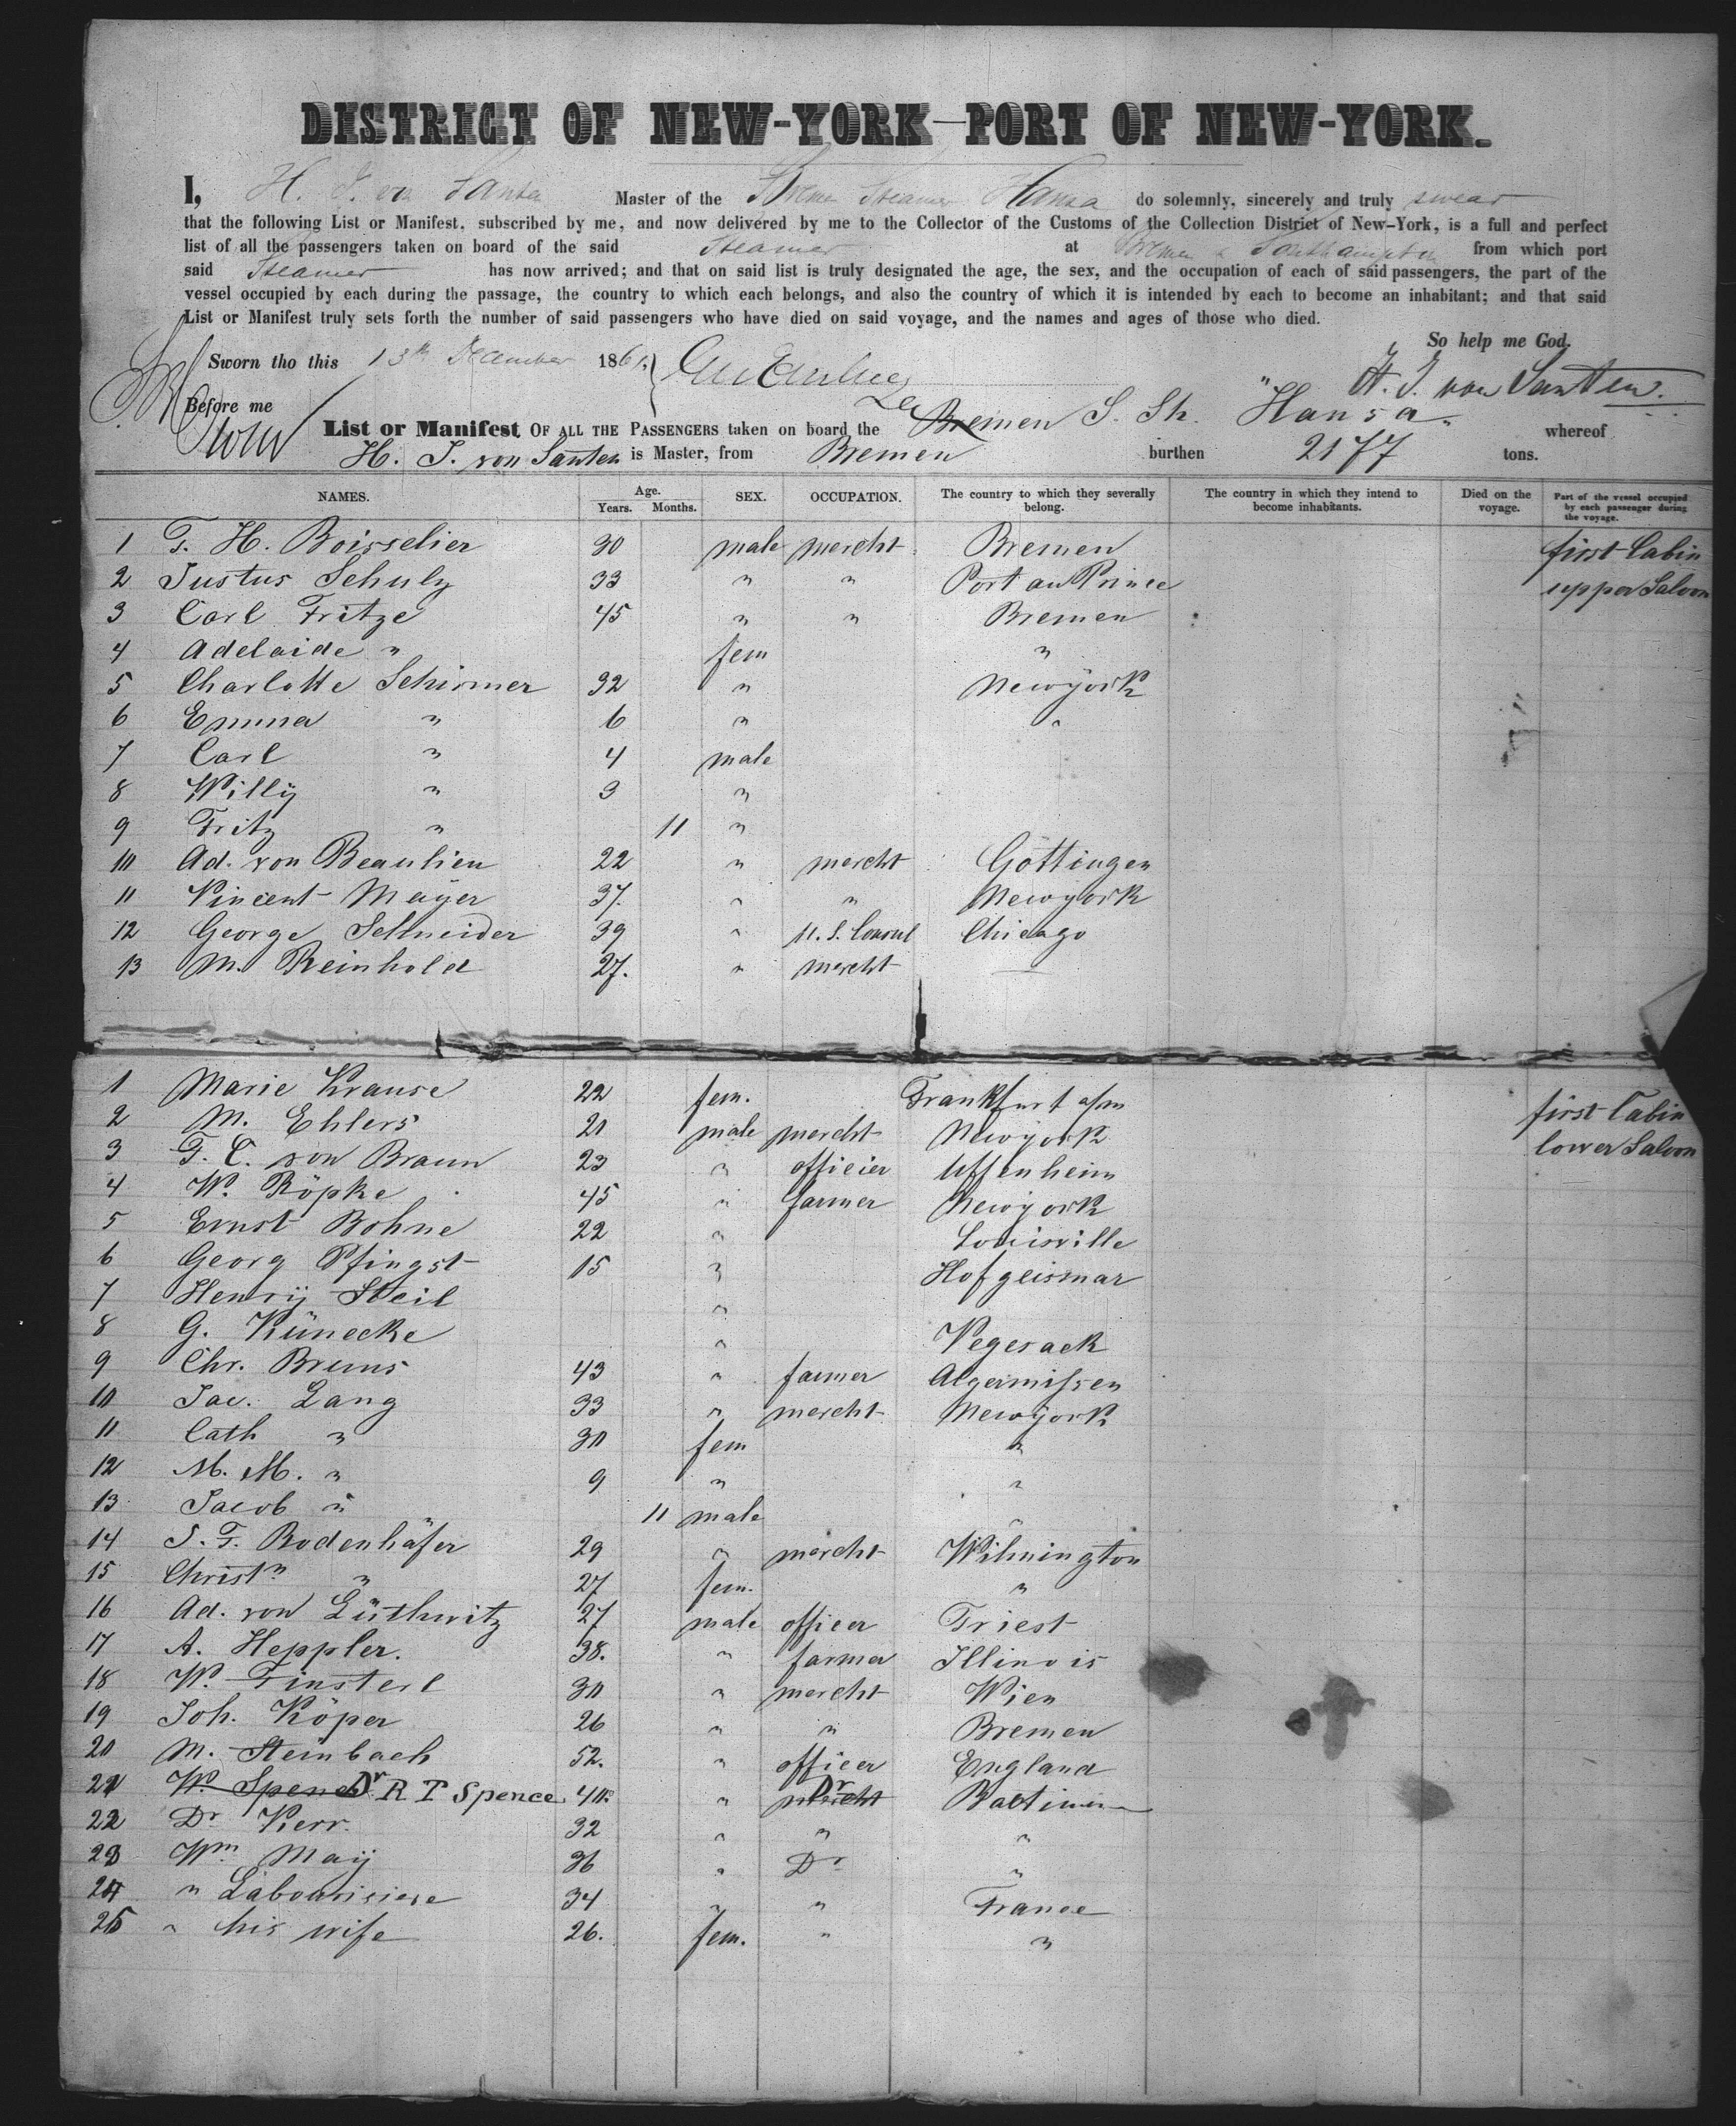 DISTRICT OF NEW-YORK—PORT OF NEW-YORK.
I, H. J. von Santen Master of the Steamer Hansa do solemnly, sincerely and truly swear
that the following List or Manifest, subscribed by me, and now delivered by me to the Collector of the Customs of the Collection District of New-York, is a full and perfect
list of all the passengers taken on board of the said Steamer at Bremen & Southampton from which port
said Steamer has now arrived; and that on said list is truly designated the age, the sex, and the occupation of each of said passengers, the part of the
vessel occupied by each during the passage, the country to which each belongs, and also the country of which it is intended by each to become an inhabitant; and that said
List or Manifest truly sets forth the number of said passengers who have died on said voyage, and the names and ages of those who died.
So help me God.
Sworn tho this 13th December 1861,
H. J. von Santen.
Before me
List or Manifest OF ALL THE PASSENGERS taken on board the Bremen S. Sh. "Hansa" whereof
H. J. von Santen is Master, from Bremen burthen 2177 tons.
NAMES. Age. Years. Months. SEX. OCCUPATION. The country to which they severally belong. The country in which they intend to become inhabitants. Died on the voyage. Part of the vessel occupied by each passenger during the voyage.
1 F. H. Boisselier 30 male mercht Bremen first Cabin
2 Justus Schulz 33 " " Port au Prince upper Saloon
3 Carl Fritze 45 " " Bremen
4 Adelaide " fem "
5 Charlotte Schirmer 32 " Newyork
6 Emma " 6 " "
7 Carl " 4 male
8 Willy " 3 "
9 Fritz " 11 "
10 Ad. von Beaulieu 22 " mercht Göttingen
11 Vincent Mayer 37. " " Newyork
12 George Schneider 39 " U.S. Consul Chicago
13 M. Reinhold 27. " mercht —
1 Marie Krause 22 fem. Frankfurt a/m first Cabin
2 M. Ehlers 21 male mercht Newyork lower Saloon
3 F. C. von Braun 23 " officier Uffenheim
4 W. Röpke 45 " farmer Newyork
5 Ernst Bohne 22 " Louisville
6 Georg Pfingst 15 " Hofgeismar
7 Henry Steil "
8 G. Künecke " Vegesack
9 Chr. Bruns 43 " farmer Algermissen
10 Jac. Lang 33 " mercht Newyork
11 Cath " 30 fem "
12 M. M. " 9 " "
13 Jacob " 11 male "
14 J. F. Bodenhäfer 29 " mercht Wilmington
15 Christn " 27 fem. "
16 Ad. von Lüthwitz 27 male officer Triest
17 A. Heppler. 38. " farmer Illinois
18 W. Finsterl 30 " mercht Wien
19 Joh. Köper 26 " " Bremen
20 M. Steinbach 52. " officer England
21 W. Spence Dr R T Spence 40. " mercht Dr Baltimore
22 Dr Kerr. 32 " " "
23 Wm May 36 " Dr "
24 " Labourisiere 34 " " France
25 " his wife 26. fem. " "